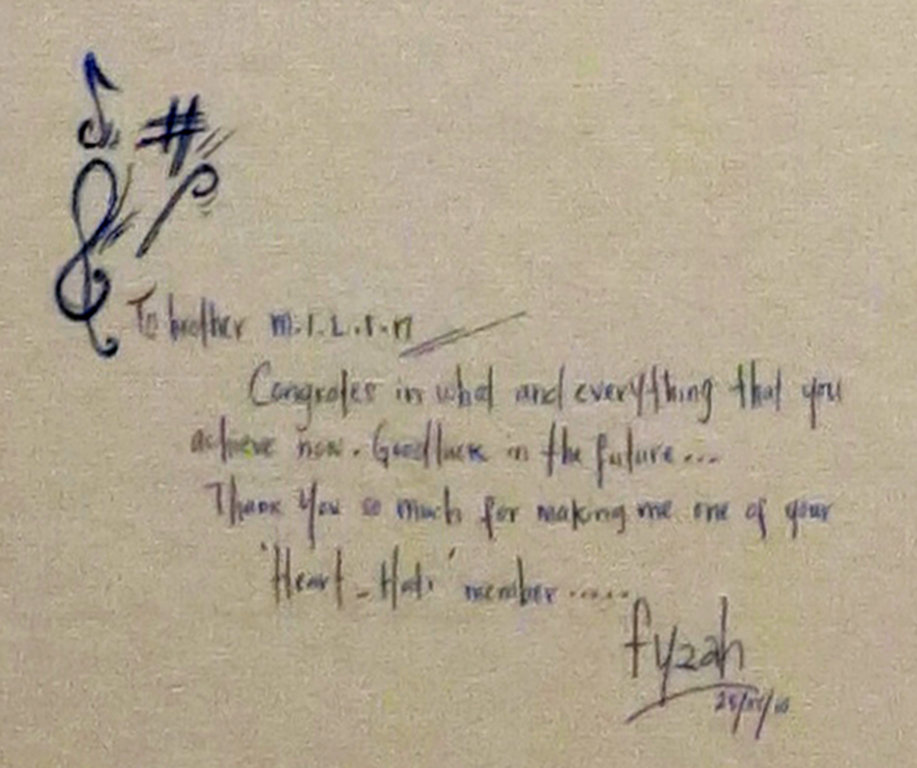 To brother m.i.L.i.n
Congrates in what and everything that you
achieve now. Goodluck in the future...
Thank You so much for making me one of your
'Heart_Hati' member.....
fyzah